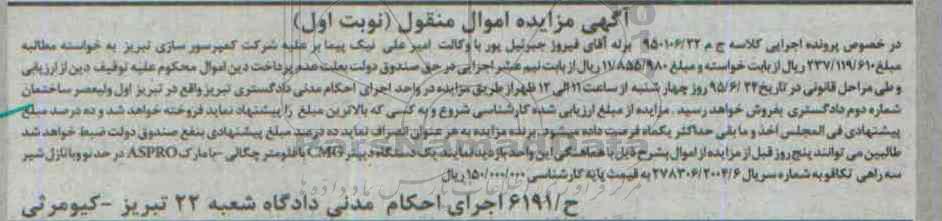 آگهی مزایده اموال منقول (نوبت اول)
در خصوص پرونده اجرایی کلاسه ج م ۹۵۰۱۰۶/۲۲ برله آقای فیروز جبرئیل پور با وکالت امیر علی نیک پیما بر علیه شرکت کمپرسور سازی تبریز به خواسته مطالبه
مبلغ ۲۳۷/۱۱۹/۶۱۰ ریال از بابت خواسته و مبلغ ۱۱/۸۵۵/۹۸۰ ریال از بابت نیم عشر اجرایی در حق صندوق دولت بعلت عدم پرداخت دین اموال محکوم علیه توقیف دین از ارزیابی
و طی مراحل قانونی در تاریخ ۹۵/۶/۲۴ روز چهار شنبه از ساعت ۱۱ الی ۱۲ ظهر از طریق مزایده در واحد اجرای احکام مدنی دادگستری تبریز واقع در تبریز اول ولیعصر ساختمان
شماره دوم دادگستری بفروش خواهد رسید . مزایده از مبلغ ارزیابی شده کارشناسی شروع و به کسی که بالاترین مبلغ را پیشنهاد نماید فروخته خواهد شد و ده درصد مبلغ
پیشنهادی فی المجلس اخذ و مابقی حداکثر یکماه فرصت داده میشود. برنده مزایده به هر عنوان انصراف نماید ده درصد مبلغ پیشنهادی بنفع صندوق دولت ضبط خواهد شد
طالبین می توانند پنج روز قبل از مزایده از اموال بشرح ذیل با هماهنگی این واحد بازدید نمایند. یک دستگاه دیپنر CMG با فلومتر چگالی - با مارک ASPRO در حد نو و با نازل شیر
سه راهی تکافو به شماره سریال ۲۷۸۳۰۶/۲۰۰۴/۶ به قیمت پایه کارشناسی ۱۵۰/۰۰۰/۰۰۰ ریال
ح/۶۱۹۱ اجرای احکام مدنی دادگاه شعبه ۲۲ تبریز - کیومرثی